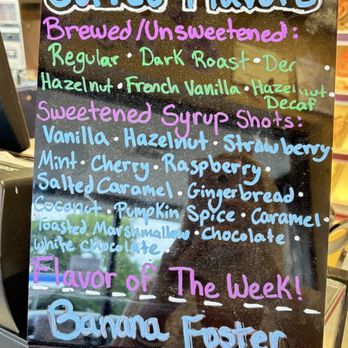 Coffee Flavors
Brewed/Unsweetened:
Regular · Dark Roast · Dec
Hazelnut · French Vanilla · Hazelnut
Decaf
Sweetened Syrup Shots:
Vanilla · Hazelnut · Strawberry
Mint · Cherry · Raspberry ·
Salted Caramel · Gingerbread ·
Coconut · Pumpkin Spice · Caramel ·
Toasted Marshmallow · Chocolate ·
White chocolate
Flavor of The Week!
Banana Foster